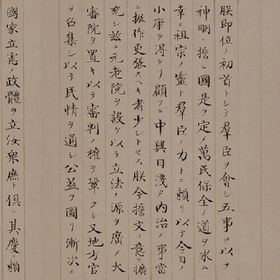 朕即位ノ初首トシテ群臣ヲ會シ五事ヲ以テ
神明ニ誓ヒ國是ヲ定メ萬民保全ノ道ヲ求ム
幸ニ祖宗ノ靈ト群臣ノ力トニ頼リ以テ今日ノ
小康ヲ得タリ顧ニ中興日淺ク内治ノ事當
ニ振作更張スヘキ者少シトセス朕今誓文ノ意ヲ擴
充シ茲ニ元老院ヲ設ケ以テ立法ノ源ヲ廣メ大
審院ヲ置キ以テ審判ノ權ヲ鞏クシ又地方官
ヲ召集シ以テ民情ヲ通シ公益ヲ圖リ漸次ニ
國家立憲ノ政體ヲ立テ汝衆庶ト倶ニ其慶ニ頼